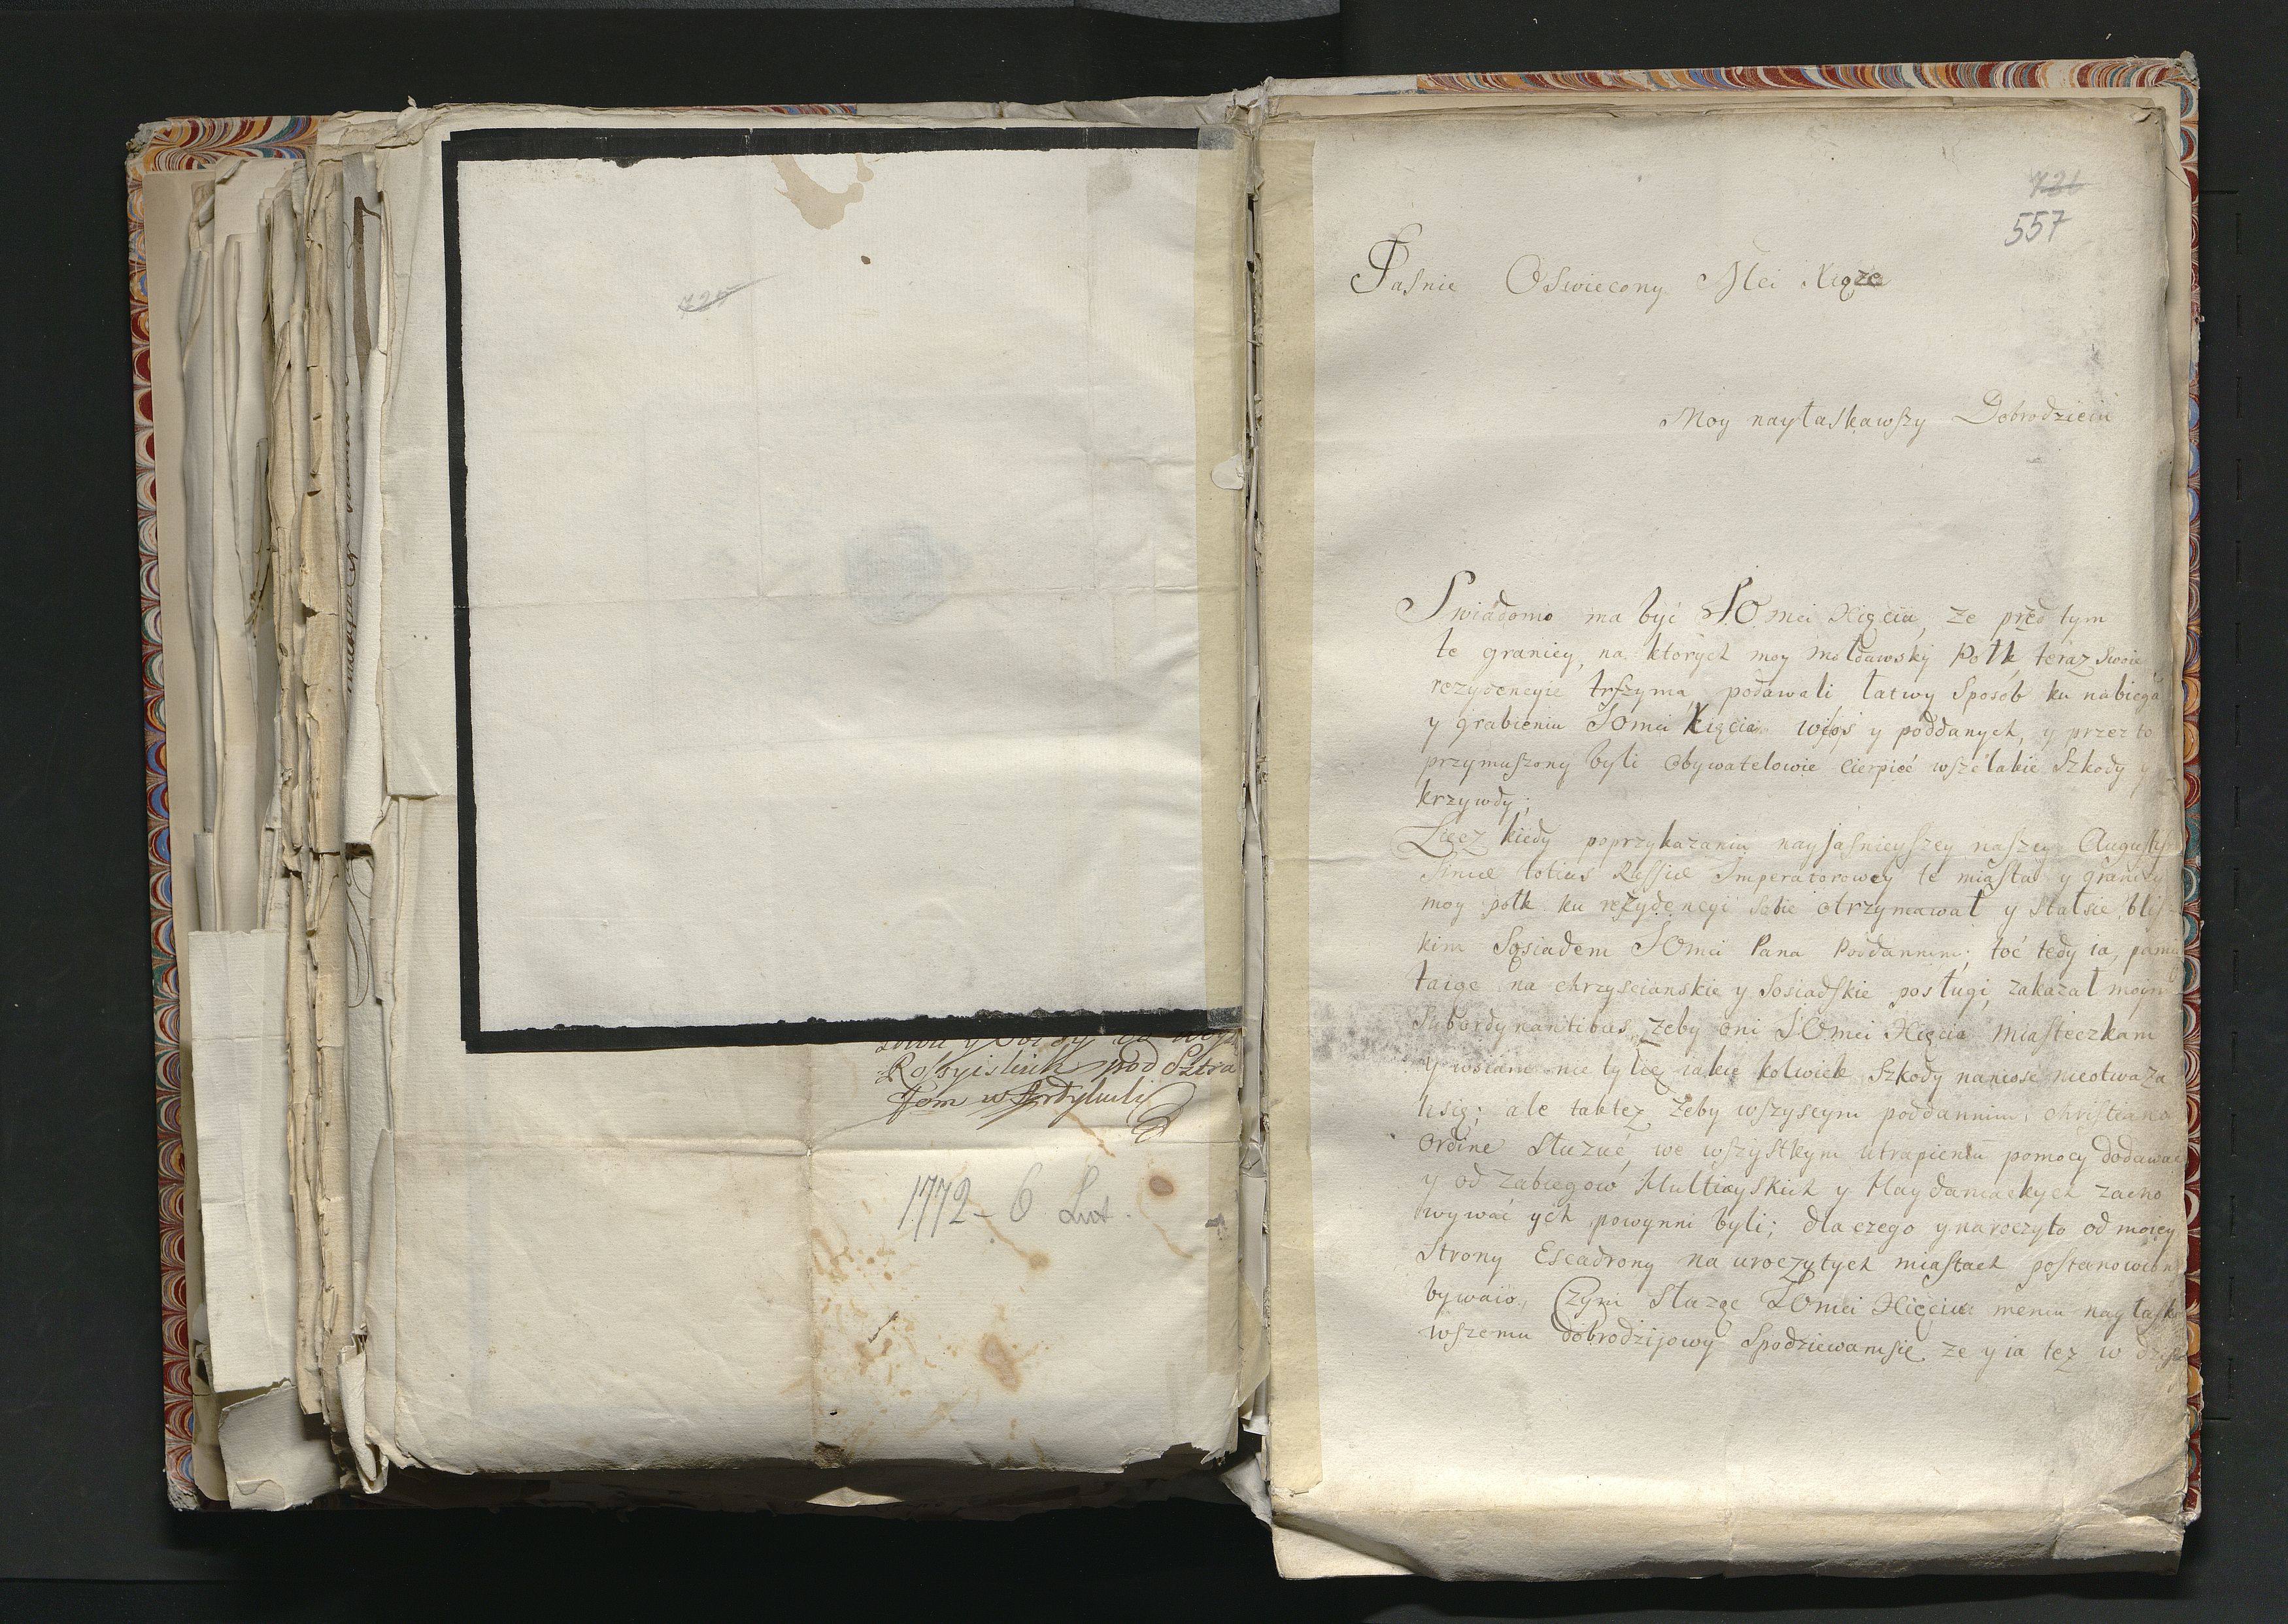 725
Rossyiskich pod Sztra
fem w Artykuli
1772 - 6 Lut.
726
557
Jasnie Oswiecony Mci Xiąze
Moy nayłaskawszy Dobrodzieiu
Swiadomo ma byi JO mci Xięcia, ze przed tym
te graniey, na ktorych moy moldawsky Połk teraz Swoie
rezydencyie trszyma, podawali łatwy Sposob ku nabiega
y grabieniu JOmci Xięcia wsos y poddanych, y przez to
przymuszony byli obywatelowie Cierpieć wszelakie Szkody y
krzywdy;
Lecz kiedy poprzykazaniu nayjasnieyszey naszey Augusty
Simæ totius Russiæ Imperatorowey te miasta y granicy
moy połk ku rezydencyi Sobie otrzymawał y Stałsie blis-
kim Sąsiadem JOmci Pana Poddannim; toć tedy ia, pamię
taiąc na chrzyscianskie y Sosiadskie posługi, zakazał moym
Subordynantibus, zeby oni JOmci Xięcia miasteczkam
y wsiam nie tylie iakie kolwiek Szkody naniosc nieotwaza
lisię; ale taktez zeby wszyscym poddannim, christiano
ordine Sluzuć, we wszystkym utrapieniu pomocy dodawac
y od zabiegow Multiayskich y Haydamackych zacho
wywać ych powynni byli; dla czego y naroczyto od moiey
Strony Escadrony na uroczytych miastach postanowion
bywaio, Czym Służąc JOmci Xięciu memu nayłaska
wszemu dobrodzijowy Spodziewamsie ze y ia tez w